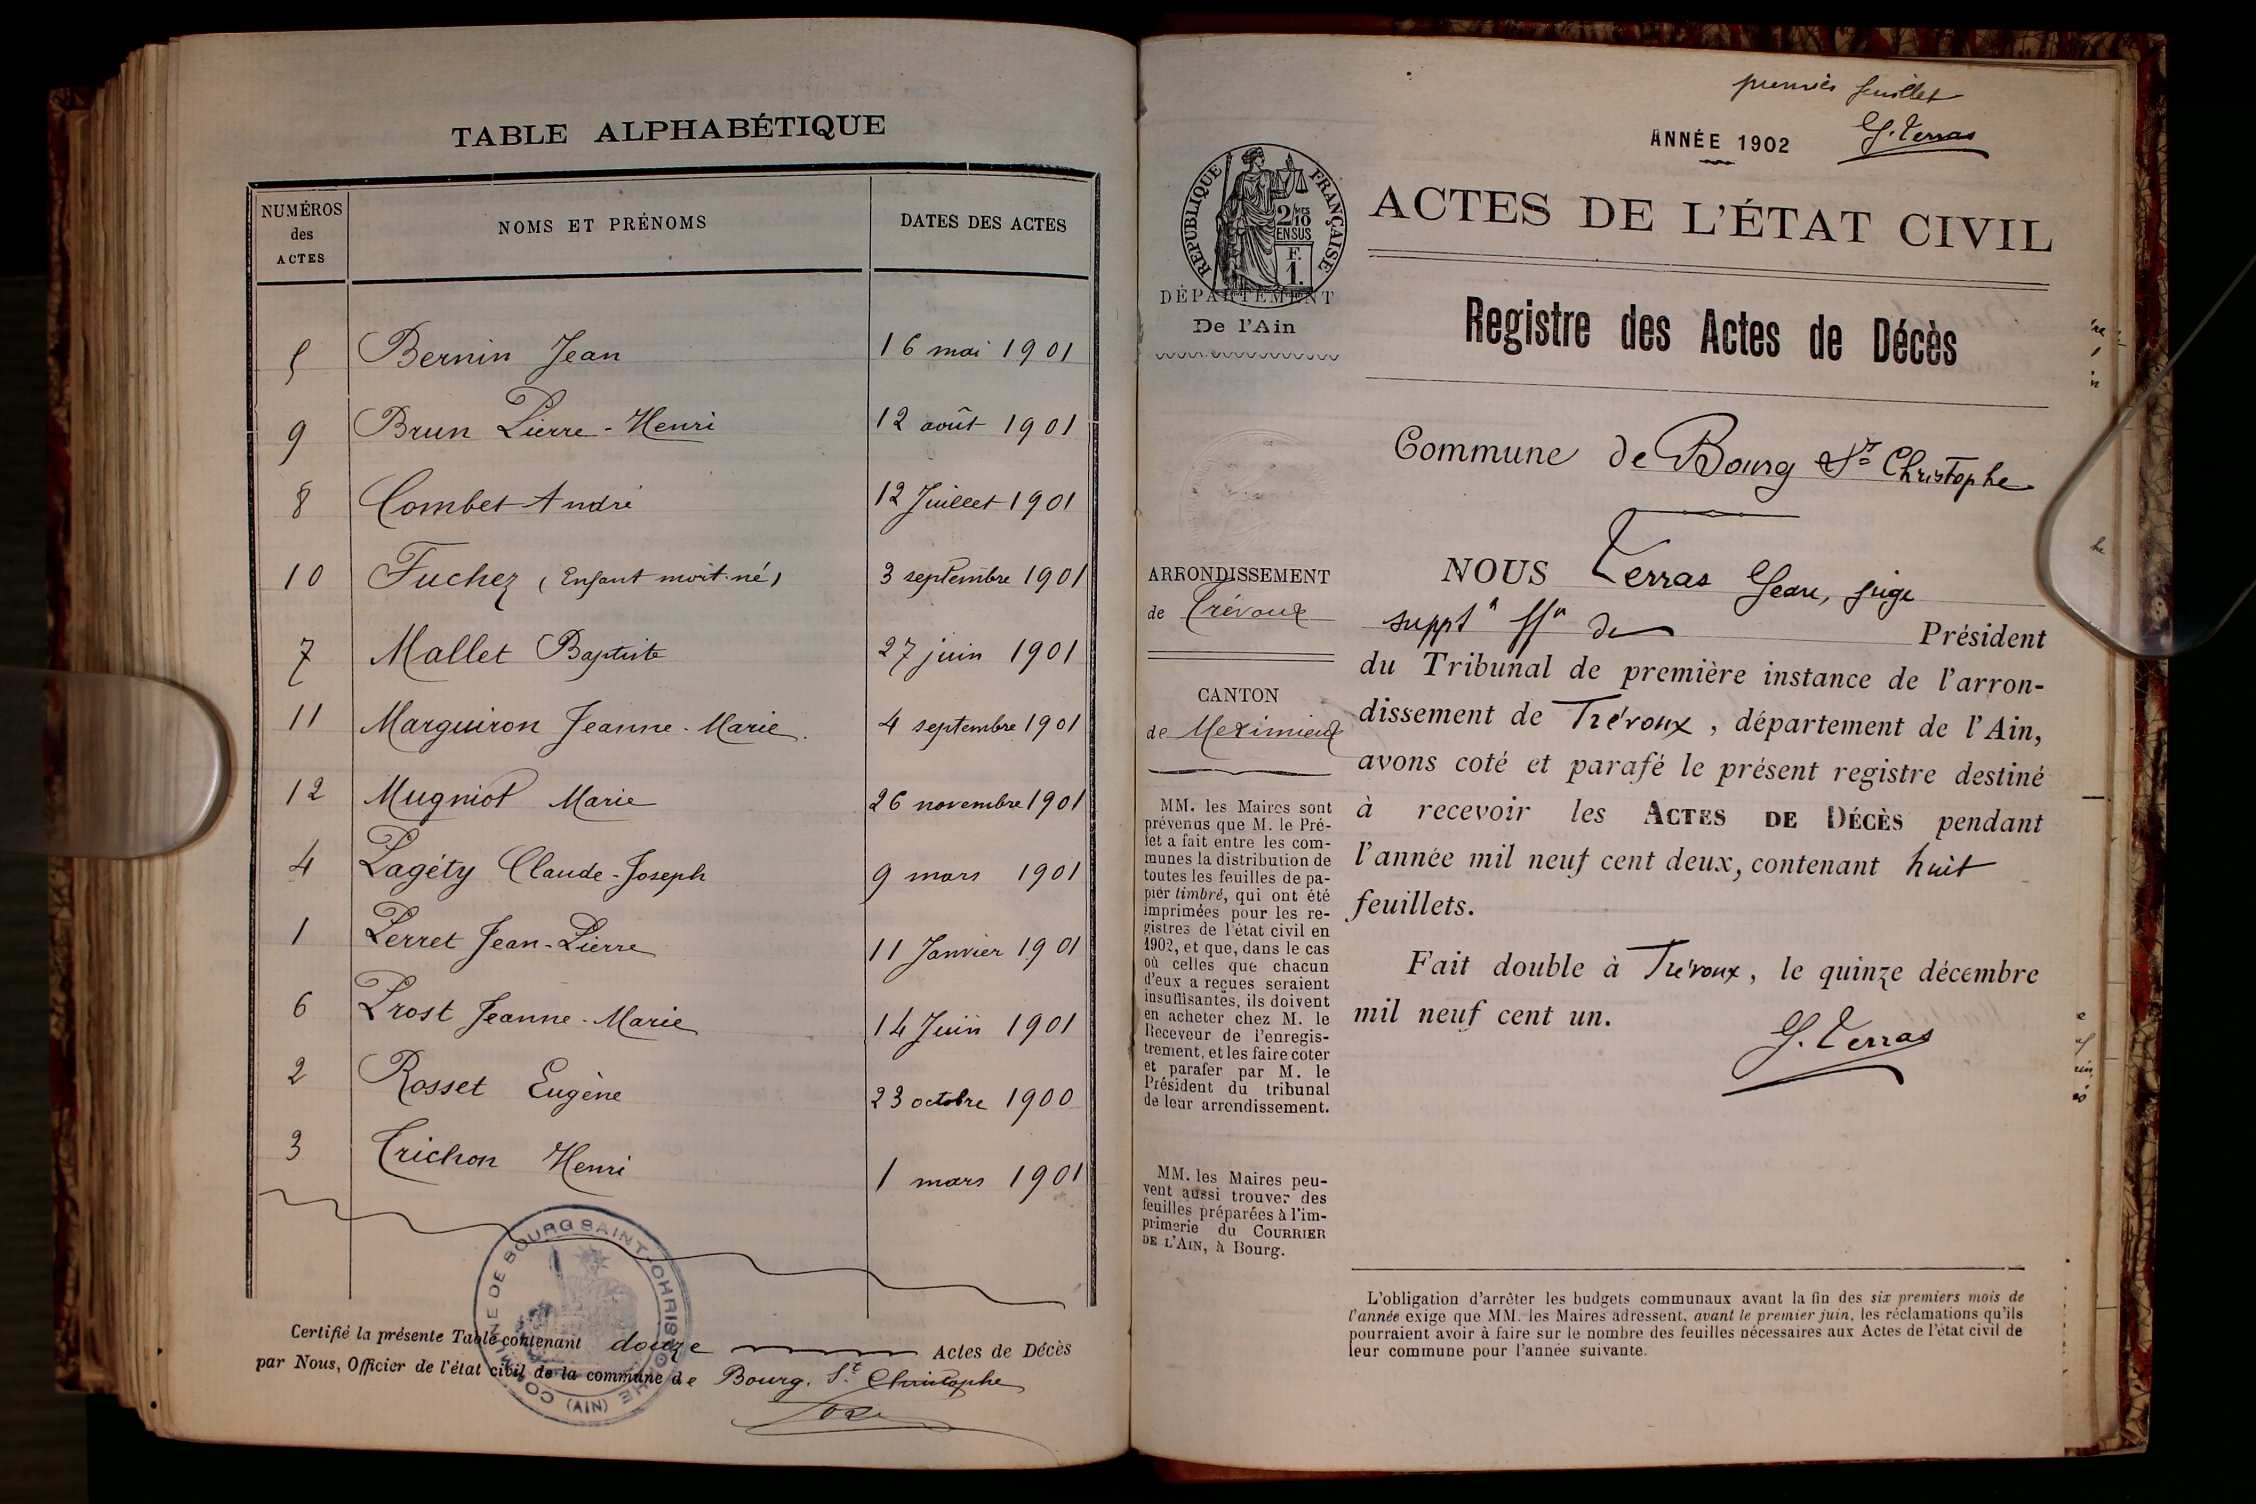 TABLE ALPHABÉTIQUE
NUMÉROS des ACTES NOMS ET PRÉNOMS DATES DES ACTES
5 Bernin Jean 16 mai 1901
9 Brun Pierre-Henri 12 août 1901
8 Combet André 12 Juillet 1901
10 Fuchez (Enfant mort-né) 3 septembre 1901
7 Mallet Baptiste 27 juin 1901
11 Marguiron Jeanne-Marie. 4 septembre 1901
12 Mugniot Marie 26 novembre 1901
4 Pagéty Claude-Joseph 9 mars 1901
1 Perret Jean-Pierre 11 Janvier 1901
6 Prost Jeanne-Marie 14 Juin 1901
2 Rosset Eugène 23 octobre 1900
3 Trichon Henri 1 mars 1901
COMMUNE DE BOURG SAINT CHRISTOPHE (AIN)
Certifié la présente Table contenant douze Actes de Décès
par Nous, Officier de l'état civil de la commune de Bourg. St Christophe
premier feuillet
G. Terras
ANNÉE 1902
RÉPUBLIQUE FRANÇAISE
2/10 MES
EN SUS
F.
1.
ACTES DE L'ÉTAT CIVIL
DÉPARTEMENT
De l'Ain
Registre des Actes de Décès
Commune de Bourg St Christophe
ARRONDISSEMENT
de Trévoux
CANTON
de Meximieux
MM. les Maires sont
prévenus que M. le Pré-
fet a fait entre les com-
munes la distribution de
toutes les feuilles de pa-
pier timbré, qui ont été
imprimées pour les re-
gistres de l'état civil en
1902, et que, dans le cas
où celles que chacun
d'eux a reçues seraient
insuffisantes, ils doivent
en acheter chez M. le
Receveur de l'enregis-
trement, et les faire coter
et parafer par M. le
Président du tribunal
de leur arrondissement.
MM. les Maires peu-
vent aussi trouver des
feuilles préparées à l'im-
primerie du COURRIER
DE L'AIN, à Bourg.
NOUS Terras Jean, juge
suppt ffn de Président
du Tribunal de première instance de l'arron-
dissement de Trévoux, département de l'Ain,
avons coté et parafé le présent registre destiné
à recevoir les ACTES DE DÉCÈS pendant
l'année mil neuf cent deux, contenant huit
feuillets.
Fait double à Trévoux, le quinze décembre
mil neuf cent un.
G. Terras
L'obligation d'arrêter les budgets communaux avant la fin des six premiers mois de
l'année exige que MM. les Maires adressent, avant le premier juin, les réclamations qu'ils
pourraient avoir à faire sur le nombre des feuilles nécessaires aux Actes de l'état civil de
leur commune pour l'année suivante.